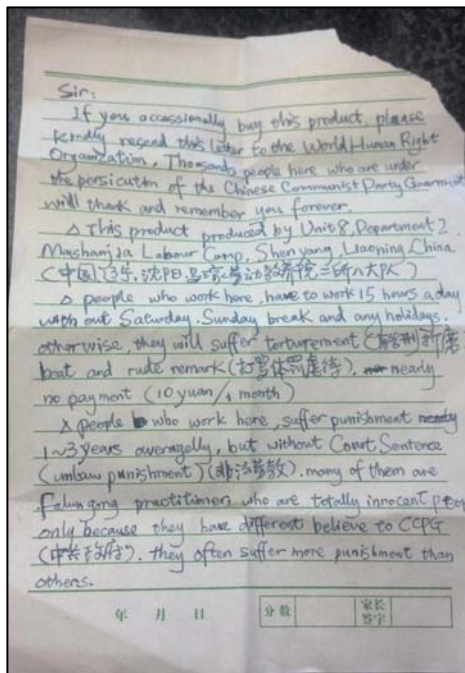 Sir:
If you occassionally buy this product, please
kindly resend this letter to the World Human Right
Organization. Thousands people here who are under
the persicution of the Chinese Communist Party Government
will thank and remember you forever.
△ This product produced by Unit 8, Department 2,
Mashanjia Labour Camp, Shen yang, Liaoning, China.
(中国,辽宁,沈阳,马三家劳动教养院二所八大队)
△ people who work here, have to work 15 hours a day
with out Saturday, Sunday break and any holidays,
otherwise, they will suffer torturement ( 折磨
beat and rude remark (打骂体罚虐待). nearly
no payment (10 yuan/1 month)
△ people who work here, suffer punishment
1~3 years averagelly, but without Court Sentence
(unlaw punishment) (非法劳教). many of them are
Falun gong practitioners, who are totally innocent people
only because they have different believe to CCPG
(中共政府). they often suffer more punishment than
others.
年 月 日 分数 家长签字